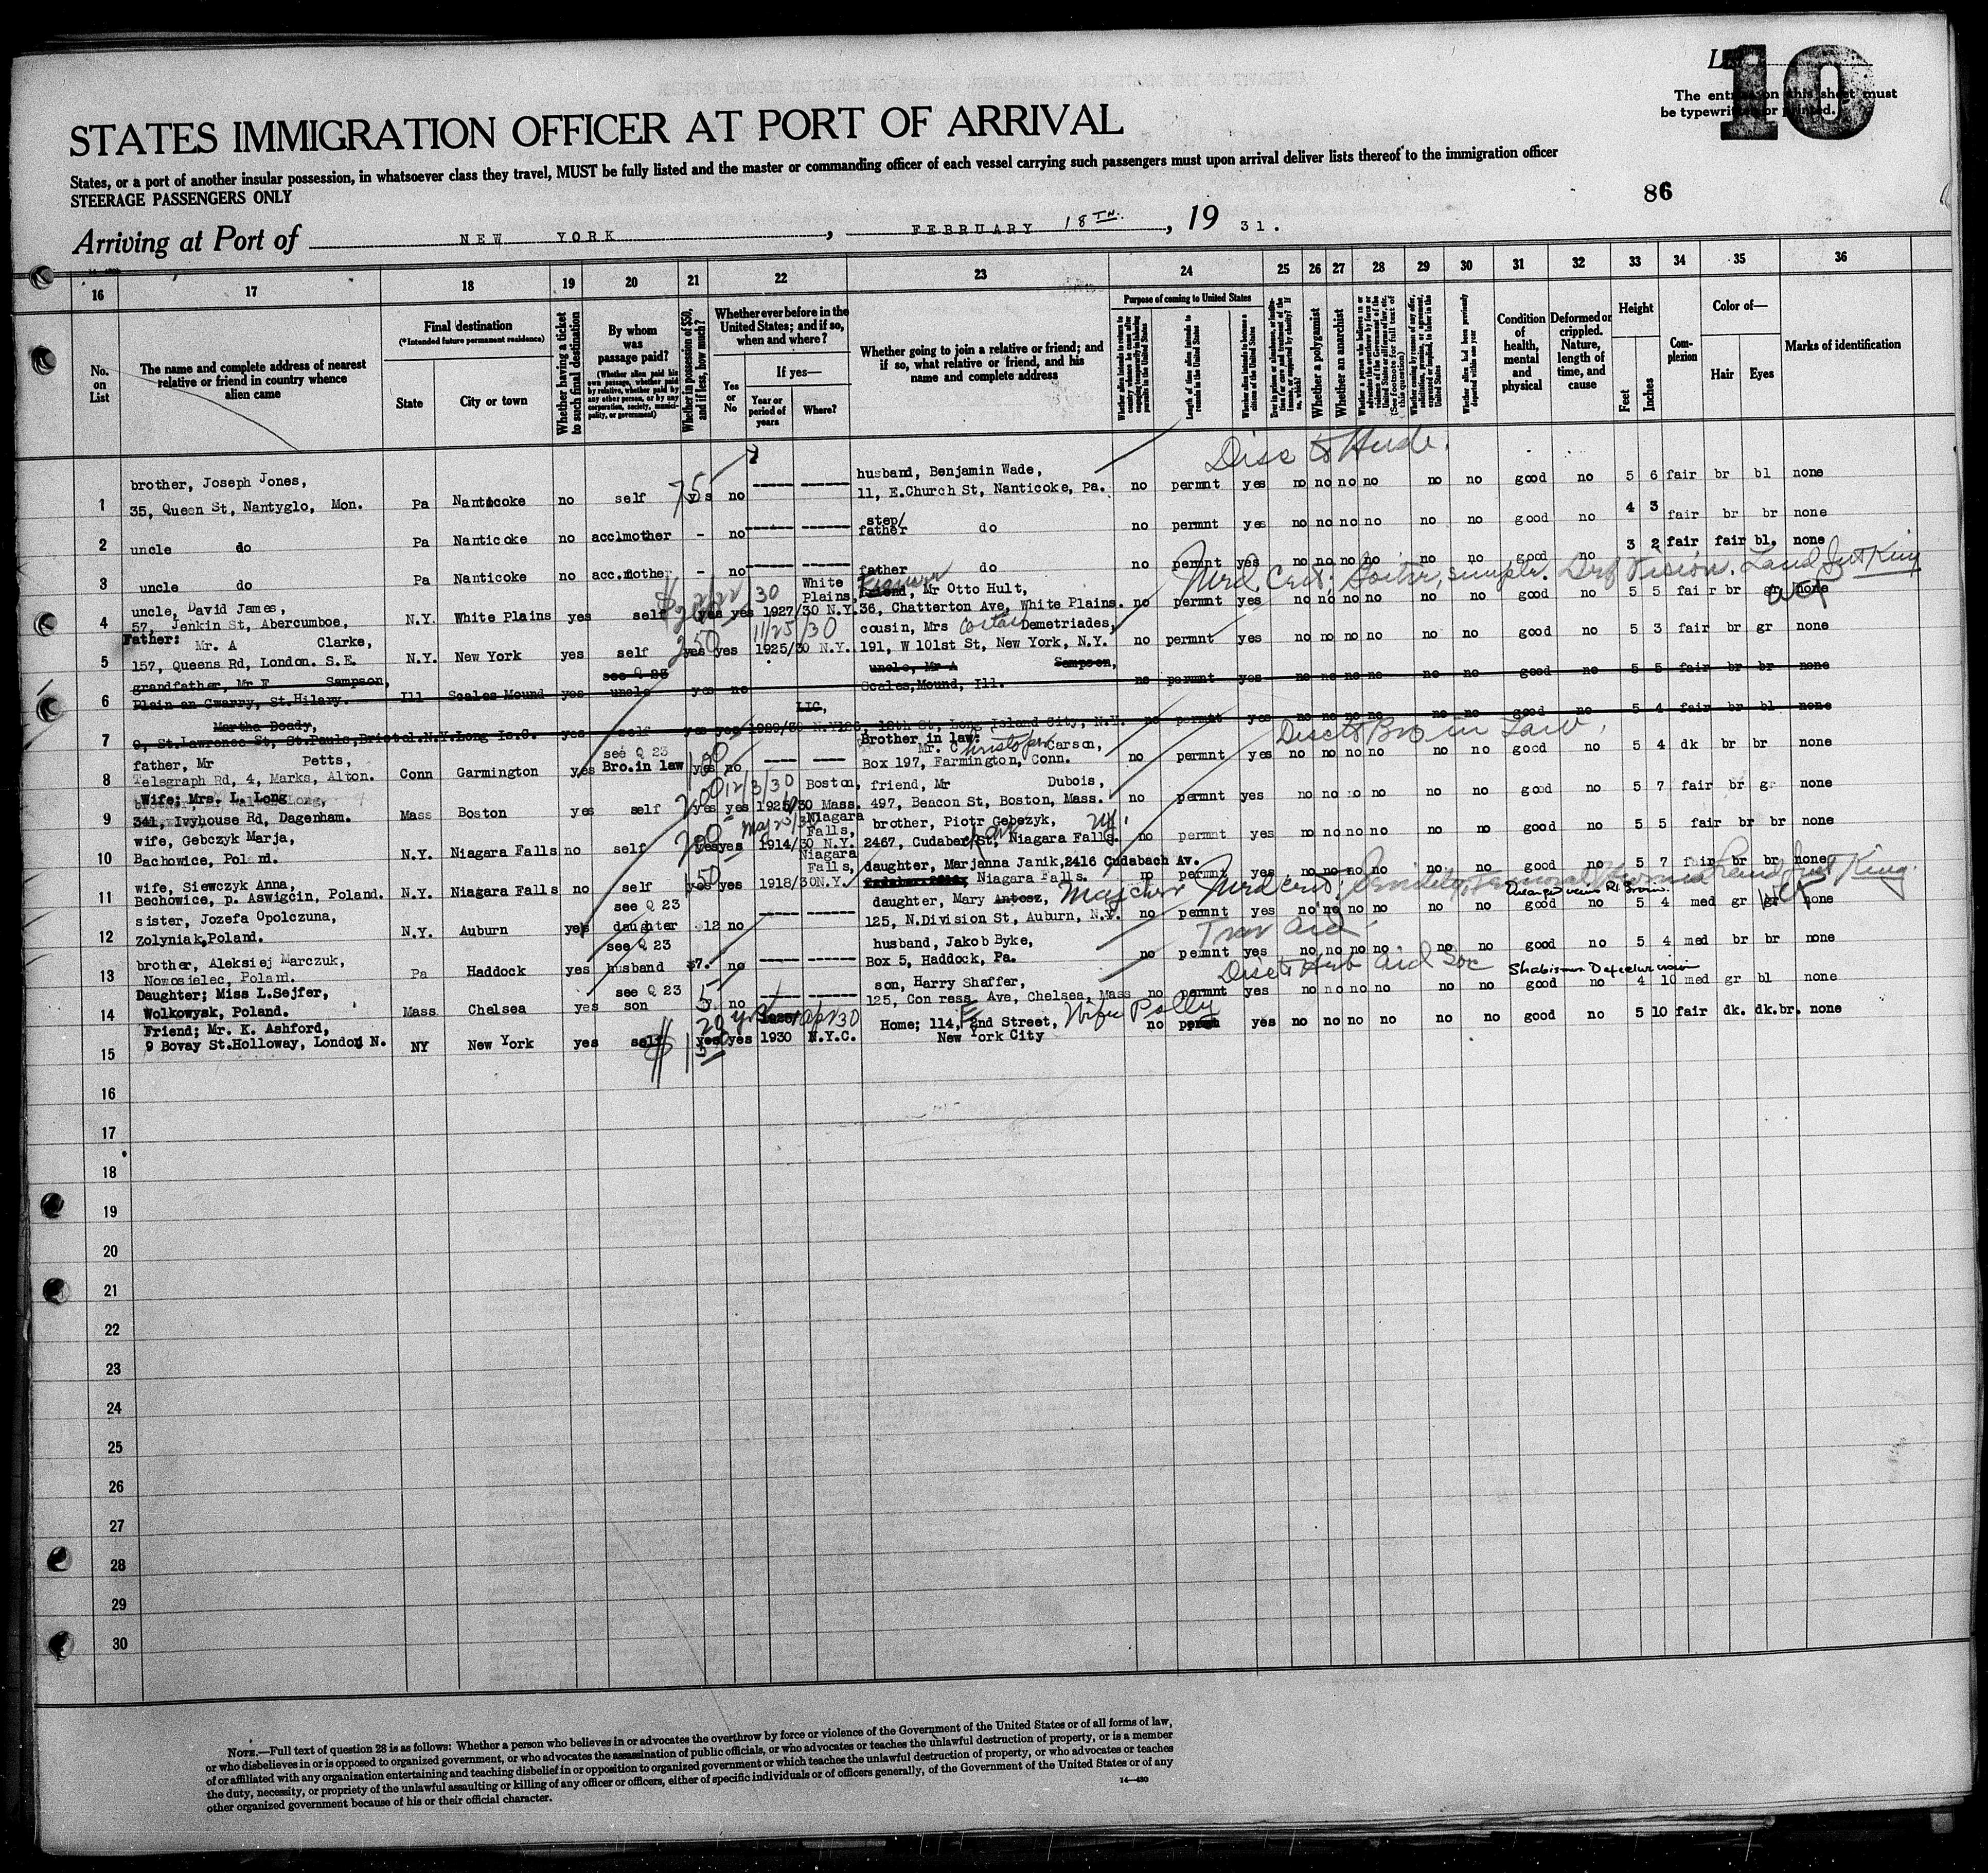 List 10
The entries on this sheet must
be typewritten or printed.
STATES IMMIGRATION OFFICER AT PORT OF ARRIVAL
States, or a port of another insular possession, in whatsoever class they travel, MUST be fully listed and the master or commanding officer of each vessel carrying such passengers must upon arrival deliver lists thereof to the immigration officer
STEERAGE PASSENGERS ONLY
86
Arriving at Port of NEW YORK, FEBRUARY 18TH., 19 31.
16 17 18 19 20 21 22 23 24 25 26 27 28 29 30 31 32 33 34 35 36
No. on List
The name and complete address of nearest relative or friend in country whence alien came
Final destination
(*Intended future permanent residence)
State
City or town
Whether having a ticket to such final destination
By whom was passage paid?
(Whether alien paid his own passage, whether paid by relative, whether paid by any other person, or by any corporation, society, municipality, or government)
Whether in possession of $50, and if less, how much?
Whether ever before in the United States; and if so, when and where?
Yes or No
If yes—
Year or period of years
Where?
Whether going to join a relative or friend; and if so, what relative or friend, and his name and complete address
Purpose of coming to United States
Length of time alien intends to remain in the United States
Whether alien intends to become a citizen of the United States
Whether a polygamist
Whether an anarchist
(See footnote for full text of this question)
Whether alien had been previously deported within one year
Condition of health, mental and physical
Deformed or crippled. Nature, length of time, and cause
Height
Feet
Inches
Complexion
Color of—
Hair
Eyes
Marks of identification
Disc to Husb.
brother, Joseph Jones, husband, Benjamin Wade,
1 35, Queen St, Nantyglo, Mon. Pa Nanticoke no self 75 yes no 11, E.Church St, Nanticoke, Pa. no permnt yes no no no no no no good no 5 6 fair br bl none
step/
2 uncle do Pa Nanticoke no acc.mother - no father do no permnt yes no no no no no no good no 4 3 fair br br none
3 uncle do Pa Nanticoke no acc.mother - no father do no permnt yes no no no no no no good no 3 2 fair fair bl. none
Med Cert; Goitre, simple. Def Vision. Land Jut King
uncle, David James, White Plains, friend, Mr Otto Hult,
4 57, Jenkin St, Abercumboe, N.Y. White Plains yes self yes yes 1927/30 N.Y. 36, Chatterton Ave, White Plains. no permnt yes no no no no no no good no 5 5 fair br gr none
Father: Mr. A Clarke, 250 11/25/30 cousin, Mrs Demetriades,
5 157, Queens Rd, London. S.E. N.Y. New York yes self yes yes 1925/30 N.Y. 191, W 101st St, New York, N.Y. no permnt yes no no no no no no good no 5 3 fair br gr none
grandfather, Mr F Sampson, see Q 23 uncle, Mr A Sampson,
6 Plain an Gwarry, St.Hilary. Ill Scales Mound yes uncle yes no Scales,Mound, Ill. no permnt yes no no no no no no good no 5 5 fair br br none
Martha Boady, LIC,
7 9, St.Lawrence St, St.Pauls, Bristol. N.Y. Long Is.C. yes self yes yes 1928/30 N.Y. 126, 18th St, Long Island City, N.Y. no permnt yes no no no no no no good no 5 4 fair br bl none
Disc to Bro in Law.
father, Mr Petts, see Q 23 Brother in law: Mr. Christopher Carson,
8 Telegraph Rd, 4, Marks, Alton. Conn Garmington yes Bro.in law yes no Box 197, Farmington, Conn. no permnt yes no no no no no no good no 5 4 dk br br none
Wife; Mrs. L. Long 200 12/3/30 Boston, friend, Mr Dubois,
9 341, Ivyhouse Rd, Dagenham. Mass Boston yes self yes yes 1925/30 Mass. 497, Beacon St, Boston, Mass. no permnt yes no no no no no no good no 5 7 fair br gr none
wife, Gebczyk Marja, 200 Niagara Falls, brother, Piotr Gebczyk,
10 Bachowice, Poland. N.Y. Niagara Falls no self yes yes 1914/30 N.Y. 2467, Cudaback St, Niagara Falls. no permnt yes no no no no no no good no 5 5 fair br br none
wife, Siewczyk Anna, 150 Niagara Falls, daughter, Marjanna Janik, 2416 Cudabach Av.
11 Bechowice, p. Aswigcin, Poland. N.Y. Niagara Falls no self yes yes 1918/30 N.Y. Niagara Falls. no permnt yes no no no no no no good no 5 7 fair br br none
Majcher Med Cert; Senility, Land Jut King.
sister, Jozefa Opolczuna, see Q 23 daughter, Mary Antosz,
12 Zolyniak, Poland. N.Y. Auburn yes daughter $12 no 125, N.Division St, Auburn, N.Y. no permnt yes no no no no no no good no 5 4 med gr gr none
Trav Aid.
brother, Aleksiej Marczuk, see Q 23 husband, Jakob Byke,
13 Nowosielec, Poland. Pa Haddock yes husband $7. no Box 5, Haddock, Pa. no permnt yes no no no no no no good no 5 4 med br br none
Disc to Heb Aid Soc
Daughter; Miss L.Sejfer, see Q 23 son, Harry Shaffer,
14 Wolkowysk, Poland. Mass Chelsea yes son no 125, Congress Ave, Chelsea, Mass no permnt yes no no no no no no good no 4 10 med gr bl none
Friend; Mr. K. Ashford, Home; 114, E 2nd Street, Wife Polly
15 9 Bovay St.Holloway, London N. NY New York yes self yes yes 1930 N.Y.C. New York City no yes no no no no no no good no 5 10 fair dk. dk.br. none
16
17
18
19
20
21
22
23
24
25
26
27
28
29
30
NOTE.—Full text of question 28 is as follows: Whether a person who believes in or advocates the overthrow by force or violence of the Government of the United States or of all forms of law,
or who disbelieves in or is opposed to organized government, or who advocates the assassination of public officials, or who advocates or teaches the unlawful destruction of property, or is a member
of or affiliated with any organization entertaining and teaching disbelief in or opposition to organized government or which teaches the unlawful destruction of property, or who advocates or teaches
the duty, necessity, or propriety of the unlawful assaulting or killing of any officer or officers, either of specific individuals or of officers generally, of the Government of the United States or of any
other organized government because of his or their official character.
14—430